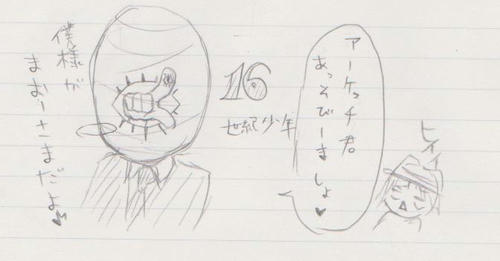 僕様が
まおーさまだよ
16
世紀少年
アーケッチ君
あっそびーま
しょ♥
ヒィィ